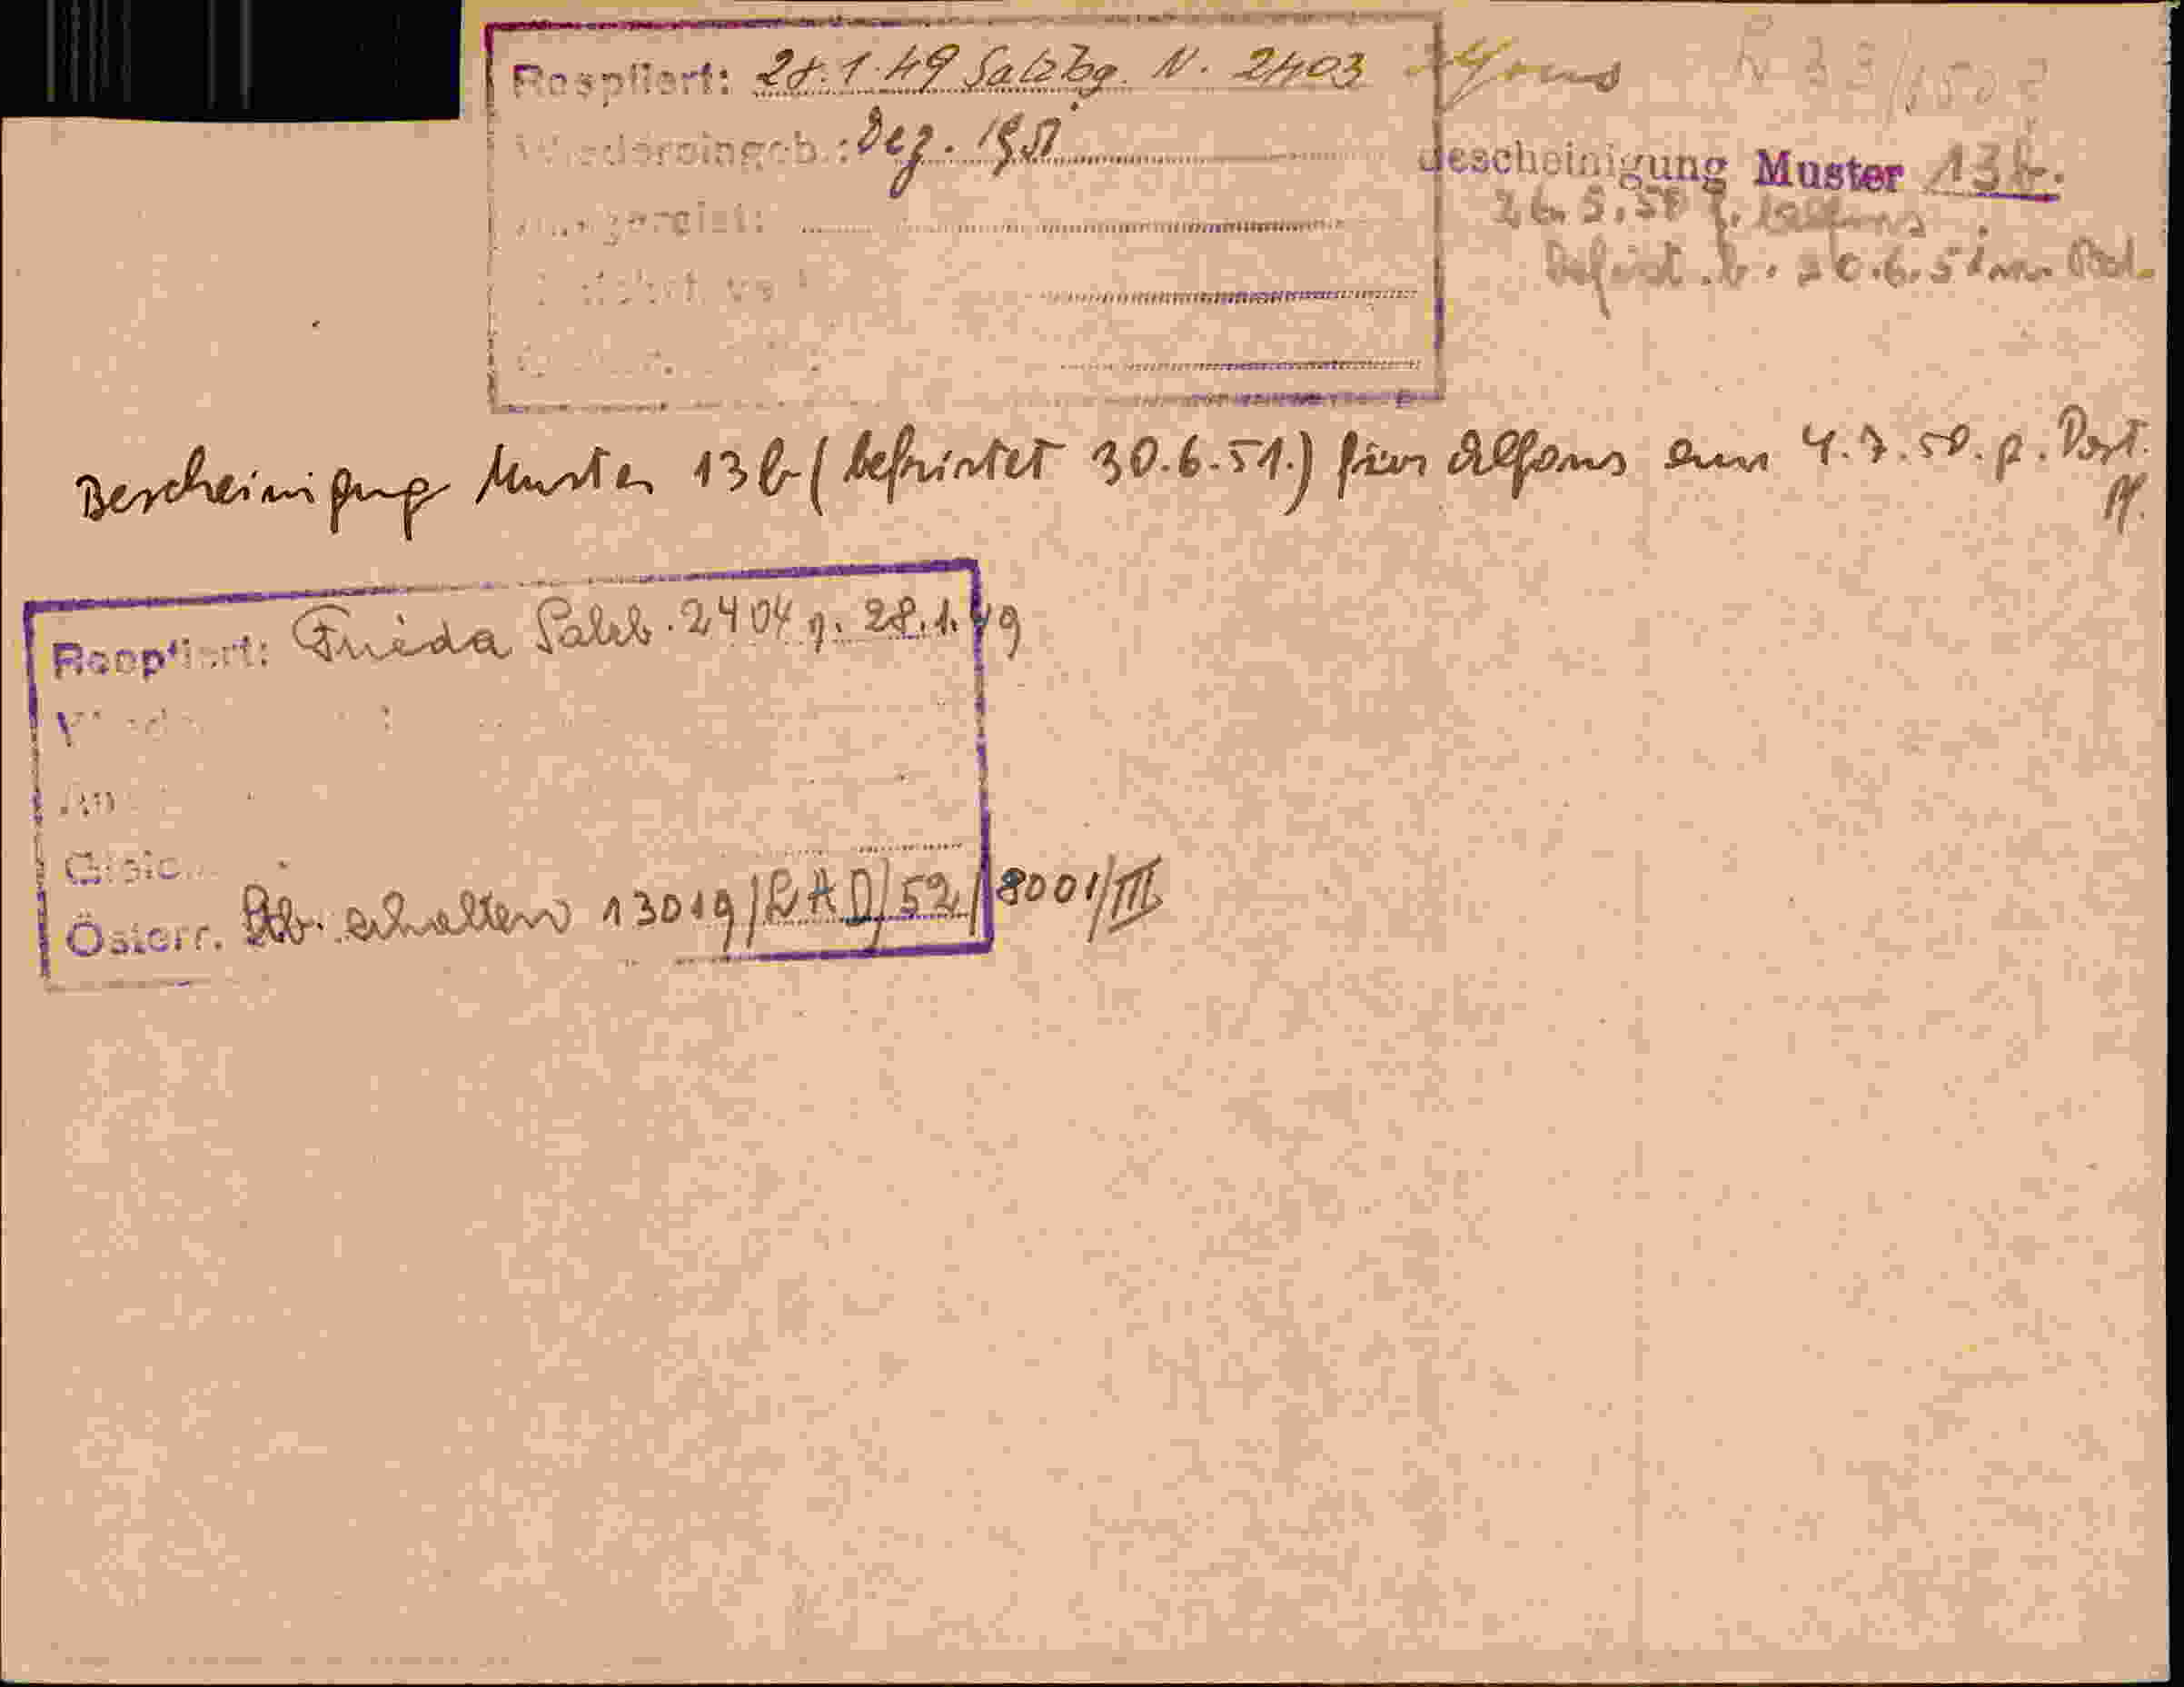 Reoptiert: 28.1.49 Salzbg. N. 2403 Alfons
Wiedereingeb.: Dez. 1951
Bescheinigung Muster 13b.
26.5.50 f. Alfons
Befrist. b. 30.6.51 Pol.
Bescheinigung Muster 13b (befristet 30.6.51.) für Alfons am 4.7.50. p. Post.
Reoptiert: Frieda Salzb. 2404 v. 28.1.49
Österr. Stb. erhalten 13019/LAD/52/8001/III